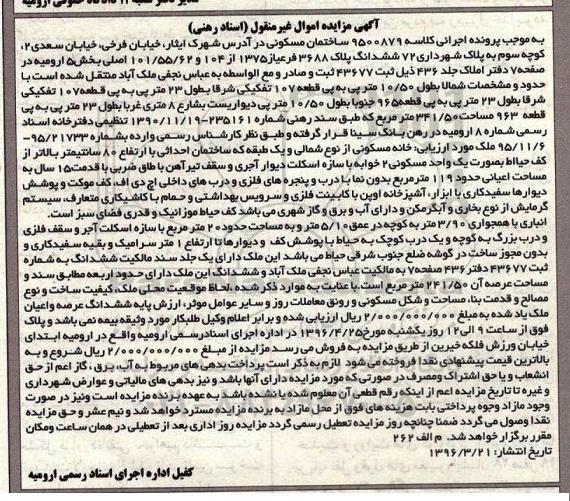 آگهی مزایده اموال غیرمنقول (اسناد رهنی)
به موجب پرونده اجرائی کلاسه ۹۵۰۰۸۷۹ ساختمان مسکونی در آدرس شهرک ایثار، خیابان فرخی، خیابان سعدی۲،
کوچه سوم به پلاک شهرداری۷۲ ششدانگ پلاک ۳۶۸۸ فرعی‌از۱۳۷۵ از ۱۰۴ و ۱۰۱/۵۵/۶۲ اصلی بخش۵ ارومیه در
صفحه۷ دفتر املاک جلد ۴۳۶ ذیل ثبت ۴۳۶۷۷ ثبت و صادر و مع الواسطه به عباس نجفی ملک آباد منتقل شده است با
حدود و مشخصات شمالا بطول ۱۰/۵۰ متر پی به پی قطعه ۱۰۷ تفکیکی شرقا بطول ۲۳ متر پی به پی قطعه۱۰۷ تفکیکی
شرقا بطول ۲۳ متر پی به پی قطعه۹۶۵ جنوبا بطول ۱۰/۵۰ متر پی دیواریست بشارع ۸ متری غربا بطول ۲۳ متر پی به پی
قطعه ۹۶۳ مساحت۲۴۱/۵۰ متر مربع که طبق سند رهنی شماره ۲۳۵۱۶۱-۱۳۹۰/۱۱/۱۹ تنظیمی دفترخانه اسناد
رسمی شماره ۸ ارومیه در رهن بانک سینا قرار گرفته و طبق نظر کارشناس رسمی وارده بشماره ۹۵/۲۱۷۳۳-
۹۵/۱۱/۶ ملک مورد ارزیابی: خانه مسکونی از نوع شمالی و یک طبقه که ساختمان احداثی با ارتفاع ۸۰ سانتیمتر بالاتر از
کف حیاط بصورت یک واحد مسکونی۲ خوابه با سازه اسکلت دیوار آجری و سقف تیرآهن با طاق ضربی با قدمت۱۵ سال به
مساحت اعیانی حدود ۱۱۹ مترمربع بدون نما با درب و پنجره های فلزی و درب های داخلی اچ دی اف، کف موکت و پوشش
دیوارها سفیدکاری با ابزار، آشپزخانه اوپن با کابینت فلزی و سرویس بهداشتی و حمام با کاشیکاری متعارف، سیستم
گرمایش از نوع بخاری و آبگرمکن و دارای آب و برق و گاز شهری می باشد کف حیاط موزائیک و قدری فضای سبز است.
انباری با همجواری ۳/۹۰ متر به کوچه در عمق ۵/۱۰ متر و به مساحت حدود۲۰ متر مربع با سازه اسکلت آجر و سقف فلزی
و درب بزرگ به کوچه و یک درب کوچک به حیاط با پوشش کف و دیوارها تا ارتفاع ۱ متر سرامیک و بقیه سفیدکاری و
بدون مجوز ساخت در گوشه ضلع جنوب شرقی حیاط می باشد این ملک دارای یک جلد سند مالکیت ششدانگ به شماره
ثبت ۴۳۶۷۷ دفتر ۴۳۶ صفحه۷ به مالکیت عباس نجفی ملک آباد و ششدانگ این ملک دارای حدود اربعه مطابق سند و
مساحت عرصه آن ۲۴۱/۵۰ متر مربع است. با عنایت به موارد ذکر شده، لحاظ موقعیت محلی ملک، کیفیت ساخت و نوع
مصالح و قدمت بنا، مساحت و شکل مسکونی و رونق معاملات روز و سایر عوامل موثر، ارزش پایه ششدانگ عرصه و اعیان
ملک یاد شده به مبلغ ۲/۰۰۰/۰۰۰/۰۰۰ ریال ارزیابی شده و برابر اعلام وکیل طلبکار مورد وثیقه بیمه نمی باشد و پلاک
فوق از ساعت ۹ الی۱۲ روز یکشنبه مورخ۱۳۹۶/۴/۲۵ در اداره اجرای اسنادرسمی ارومیه واقع در ارومیه ابتدای
خیابان ورزش فلکه خیرین از طریق مزایده به فروش می رسد مزایده از مبلغ ۲/۰۰۰/۰۰۰/۰۰۰ ریال شروع و به
بالاترین قیمت پیشنهادی نقدا فروخته می شود لازم به ذکر است پرداخت بدهی های مربوط به آب، برق، گاز اعم از حق
انشعاب و یا حق اشتراک ومصرف در صورتی که مورد مزایده دارای آنها باشد و نیز بدهی های مالیاتی و عوارض شهرداری
و غیره تا تاریخ مزایده اعم از اینکه رقم قطعی آن معلوم شده یا نشده باشد به عهده برنده مزایده است ونیز در صورت
وجود مازاد وجوه پرداختی بابت هزینه های فوق از محل مازاد به برنده مزایده مسترد خواهد شد و نیم عشر و حق مزایده
نقدا وصول می گردد ضمنا چنانچه روز مزایده تعطیل رسمی گردد مزایده روز اداری بعد از تعطیلی در همان ساعت ومکان
مقرر برگزار خواهد شد. م الف ۲۶۲
تاریخ انتشار: ۱۳۹۶/۳/۲۱
کفیل اداره اجرای اسناد رسمی ارومیه